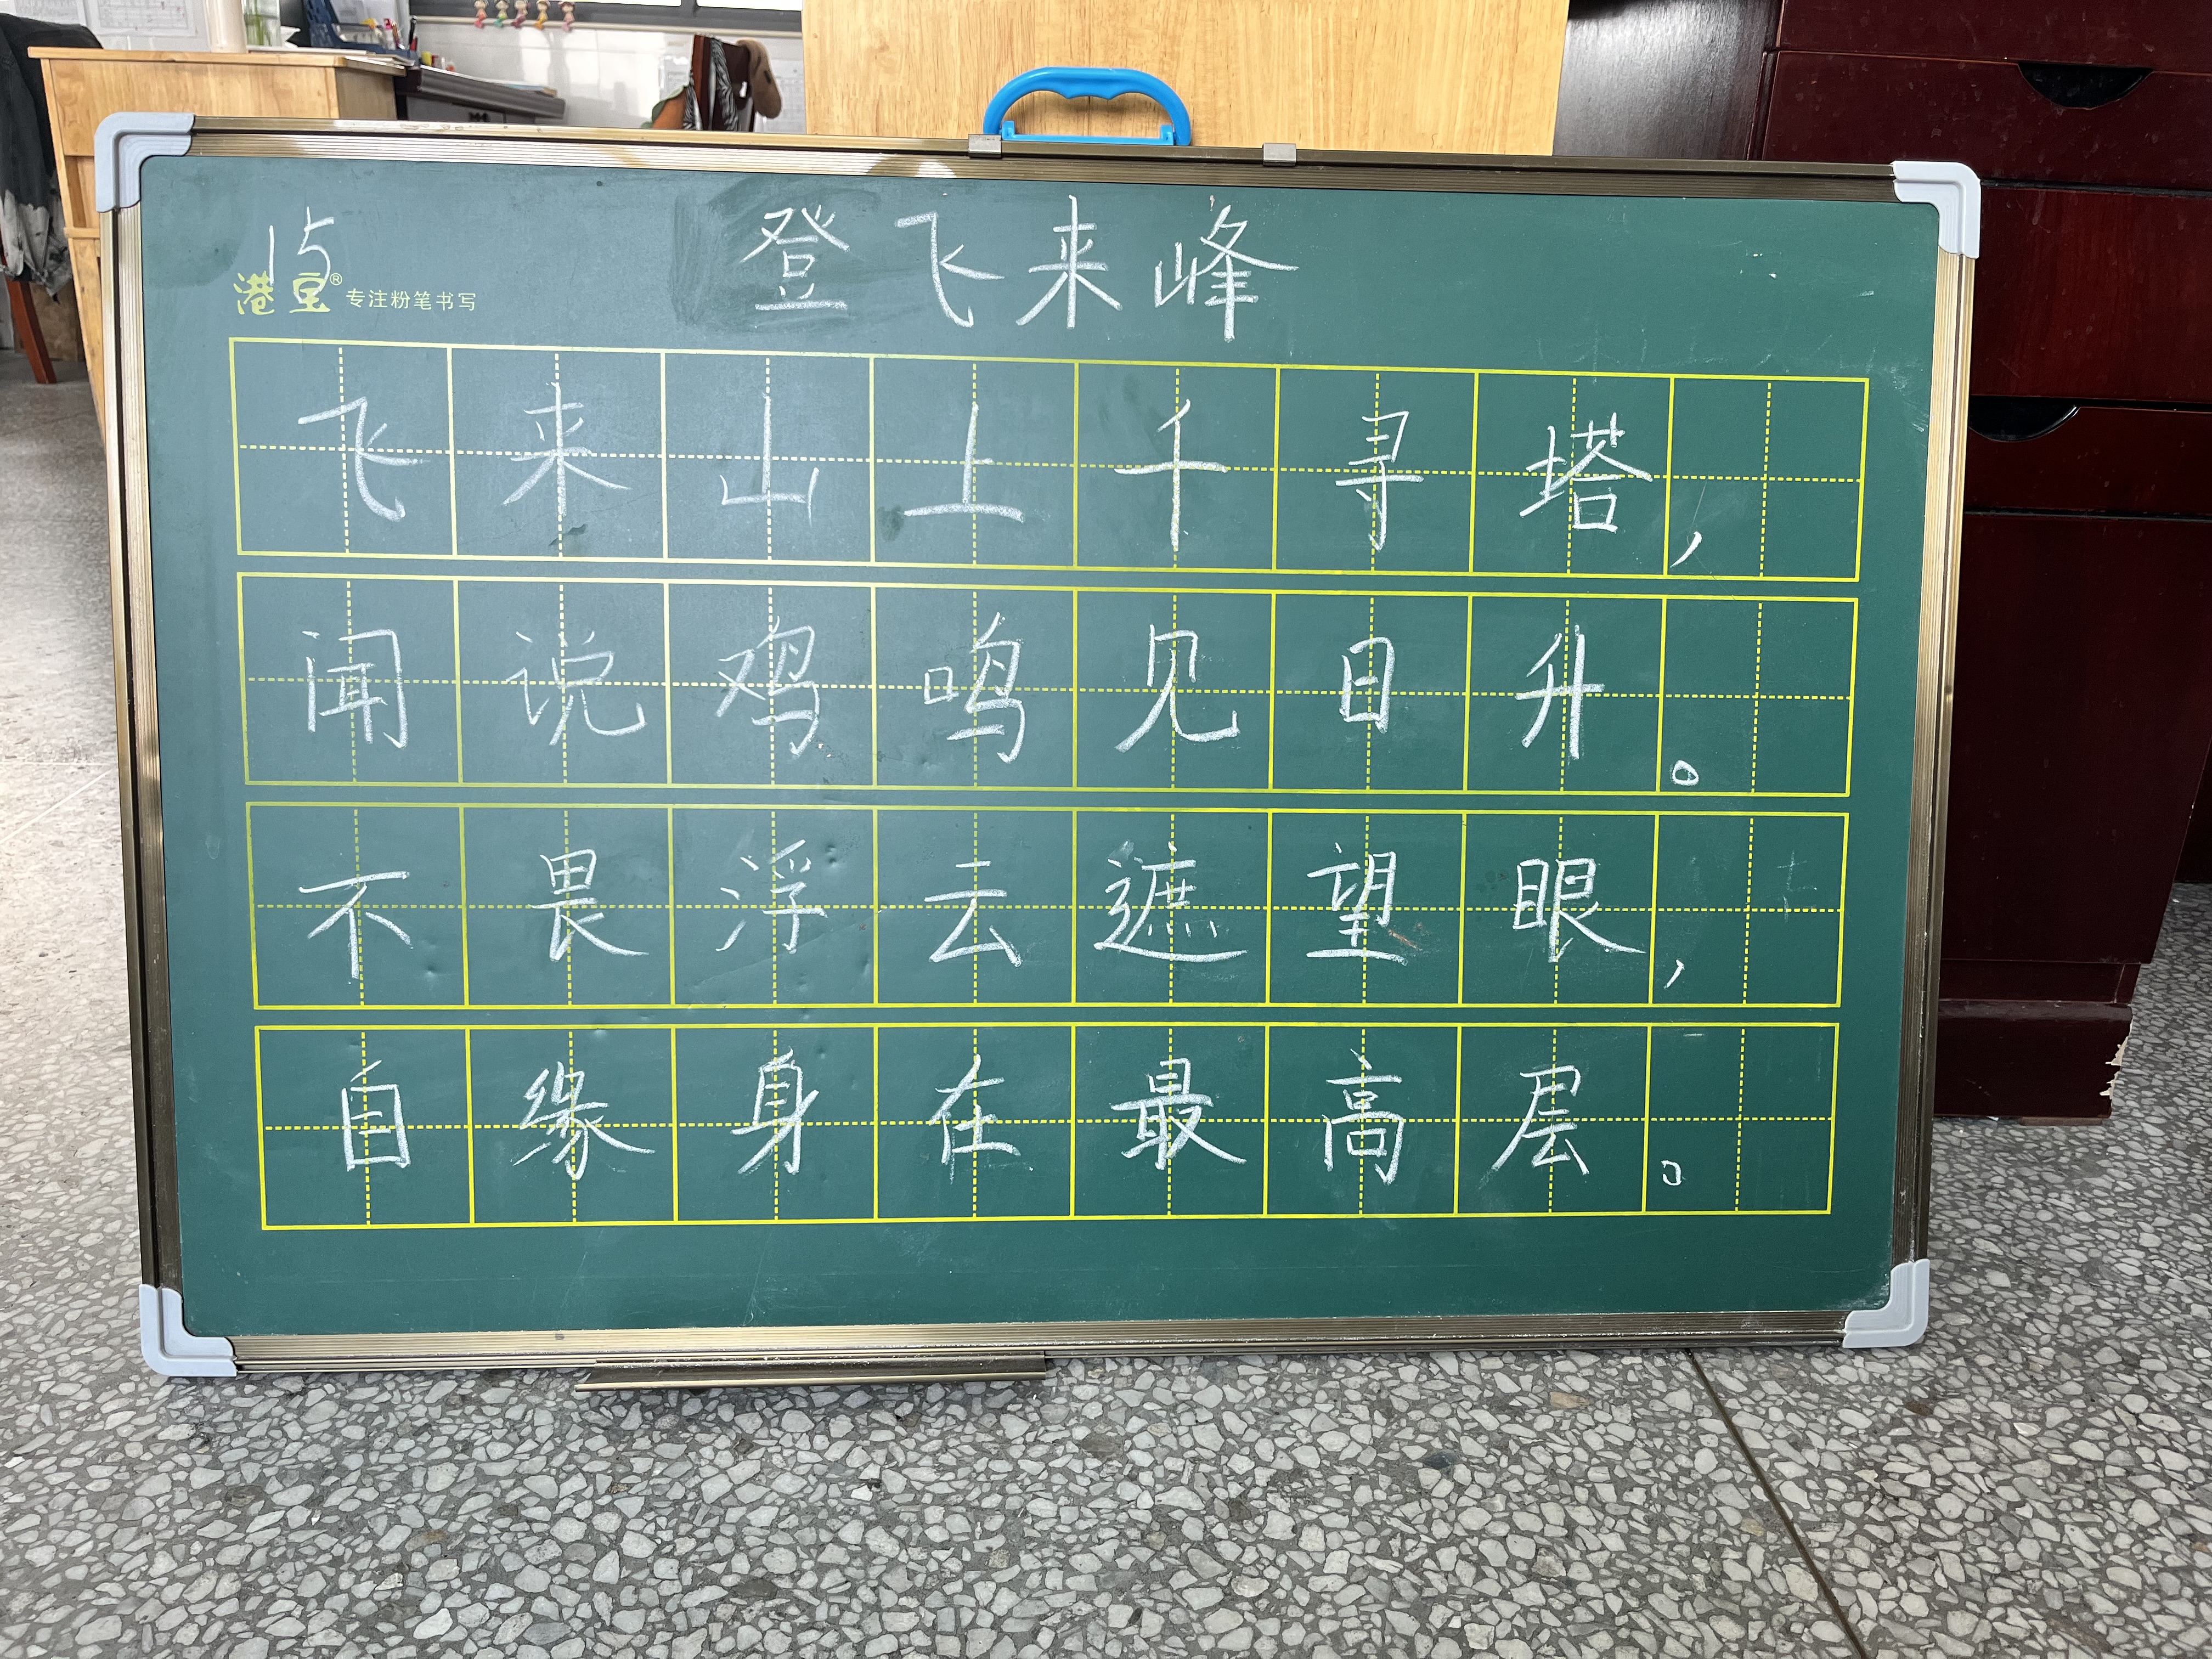 15 登飞来峰
港宝® 专注粉笔书写
飞来山上千寻塔,
闻说鸡鸣见日升。
不畏浮云遮望眼,
自缘身在最高层。